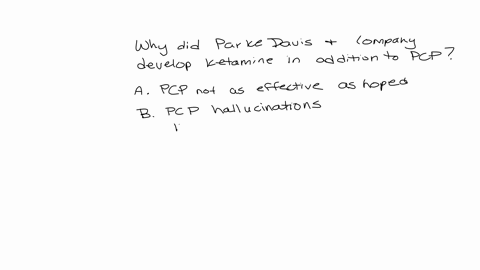 Why did Parke Davis + Company
develop ketamine in addition to PCP?
A. PCP not as effective as hoped
B. PCP hallucinations